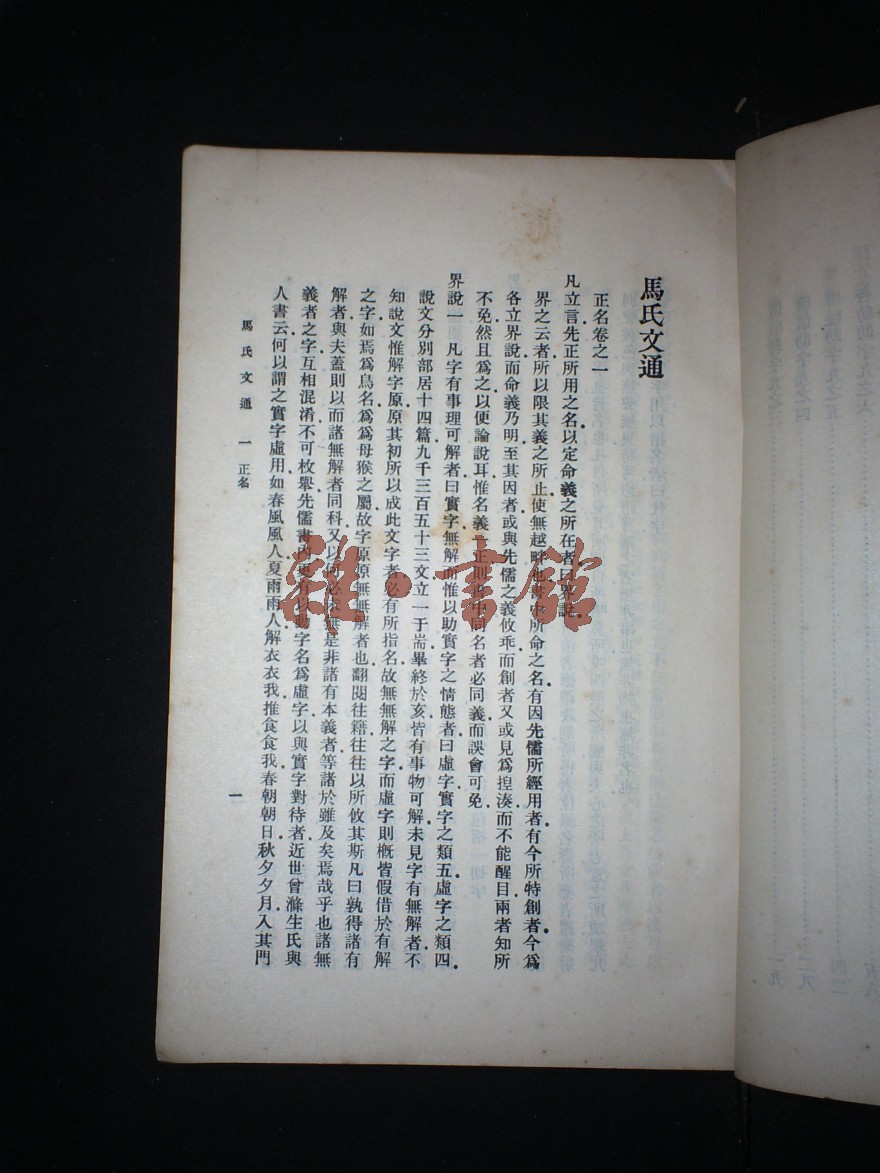 馬氏文通
正名卷之一
凡立言先正所用之名以定命義之所在者曰界說
界之云者所以限其義之所止使無越畔也書中所命之名有因先儒所經用者有今所特創者今爲
各立界說而命義乃明至其因者或與先儒之義攸乖而創者又或見爲揑湊而不能醒目兩者知所
不免然且爲之以便論說耳惟名義一正則書中同名者必同義而誤會可免
界說一 凡字有事理可解者曰實字無解而惟以助實字之情態者曰虛字實字之類五虛字之類四
說文分別部居十四篇九千三百五十三文立一于耑畢終於亥皆有事物可解未見字有無解者不
知說文惟解字原原其初所以成此文字者必有所指名故無無解之字而虛字則槪皆假借於有解
之字如焉爲鳥名爲爲母猴之屬故字原無無解者也翻閱往籍往往以所攸其斯凡曰孰得諸有
解者與夫蓋則以而諸無解者同科又以何必未無是非諸有本義者等諸於雖及矣焉哉乎也諸無
義者之字互相混淆不可枚舉先儒書內更有以動字名爲虛字以與實字對待者近世曾滌生氏與
人書云何以謂之實字虛用如春風風人夏雨雨人解衣衣我推食食我春朝朝日秋夕夕月入其門
馬氏文通 一 正名
一
雜·書館